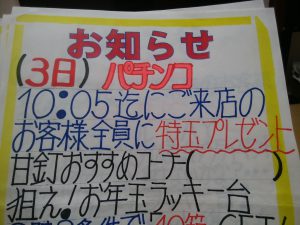 お知らせ
(3日) パチンコ
10:05迄にご来店の
お客様全員に特玉プレゼント
甘釘おすすめコーナ(
狙え!お年玉ラッキー台